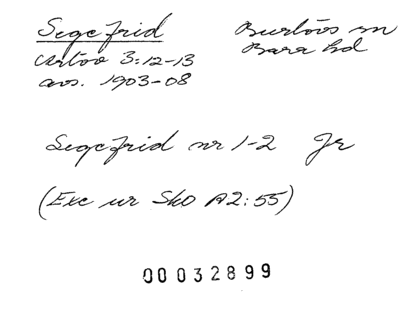 Segefrid Burlövs sn
Arlöv 3:12-13 Bara hd
avs. 1903-08
Segefrid nr 1-2 Jr
(Exc ur Sko A2:55)
00032899